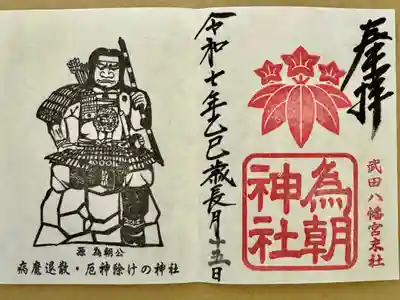 奉拝
武田八幡宮末社
為朝
神社
令和七年乙巳歳長月十五日
源 為朝公
病魔退散・厄神除けの神社